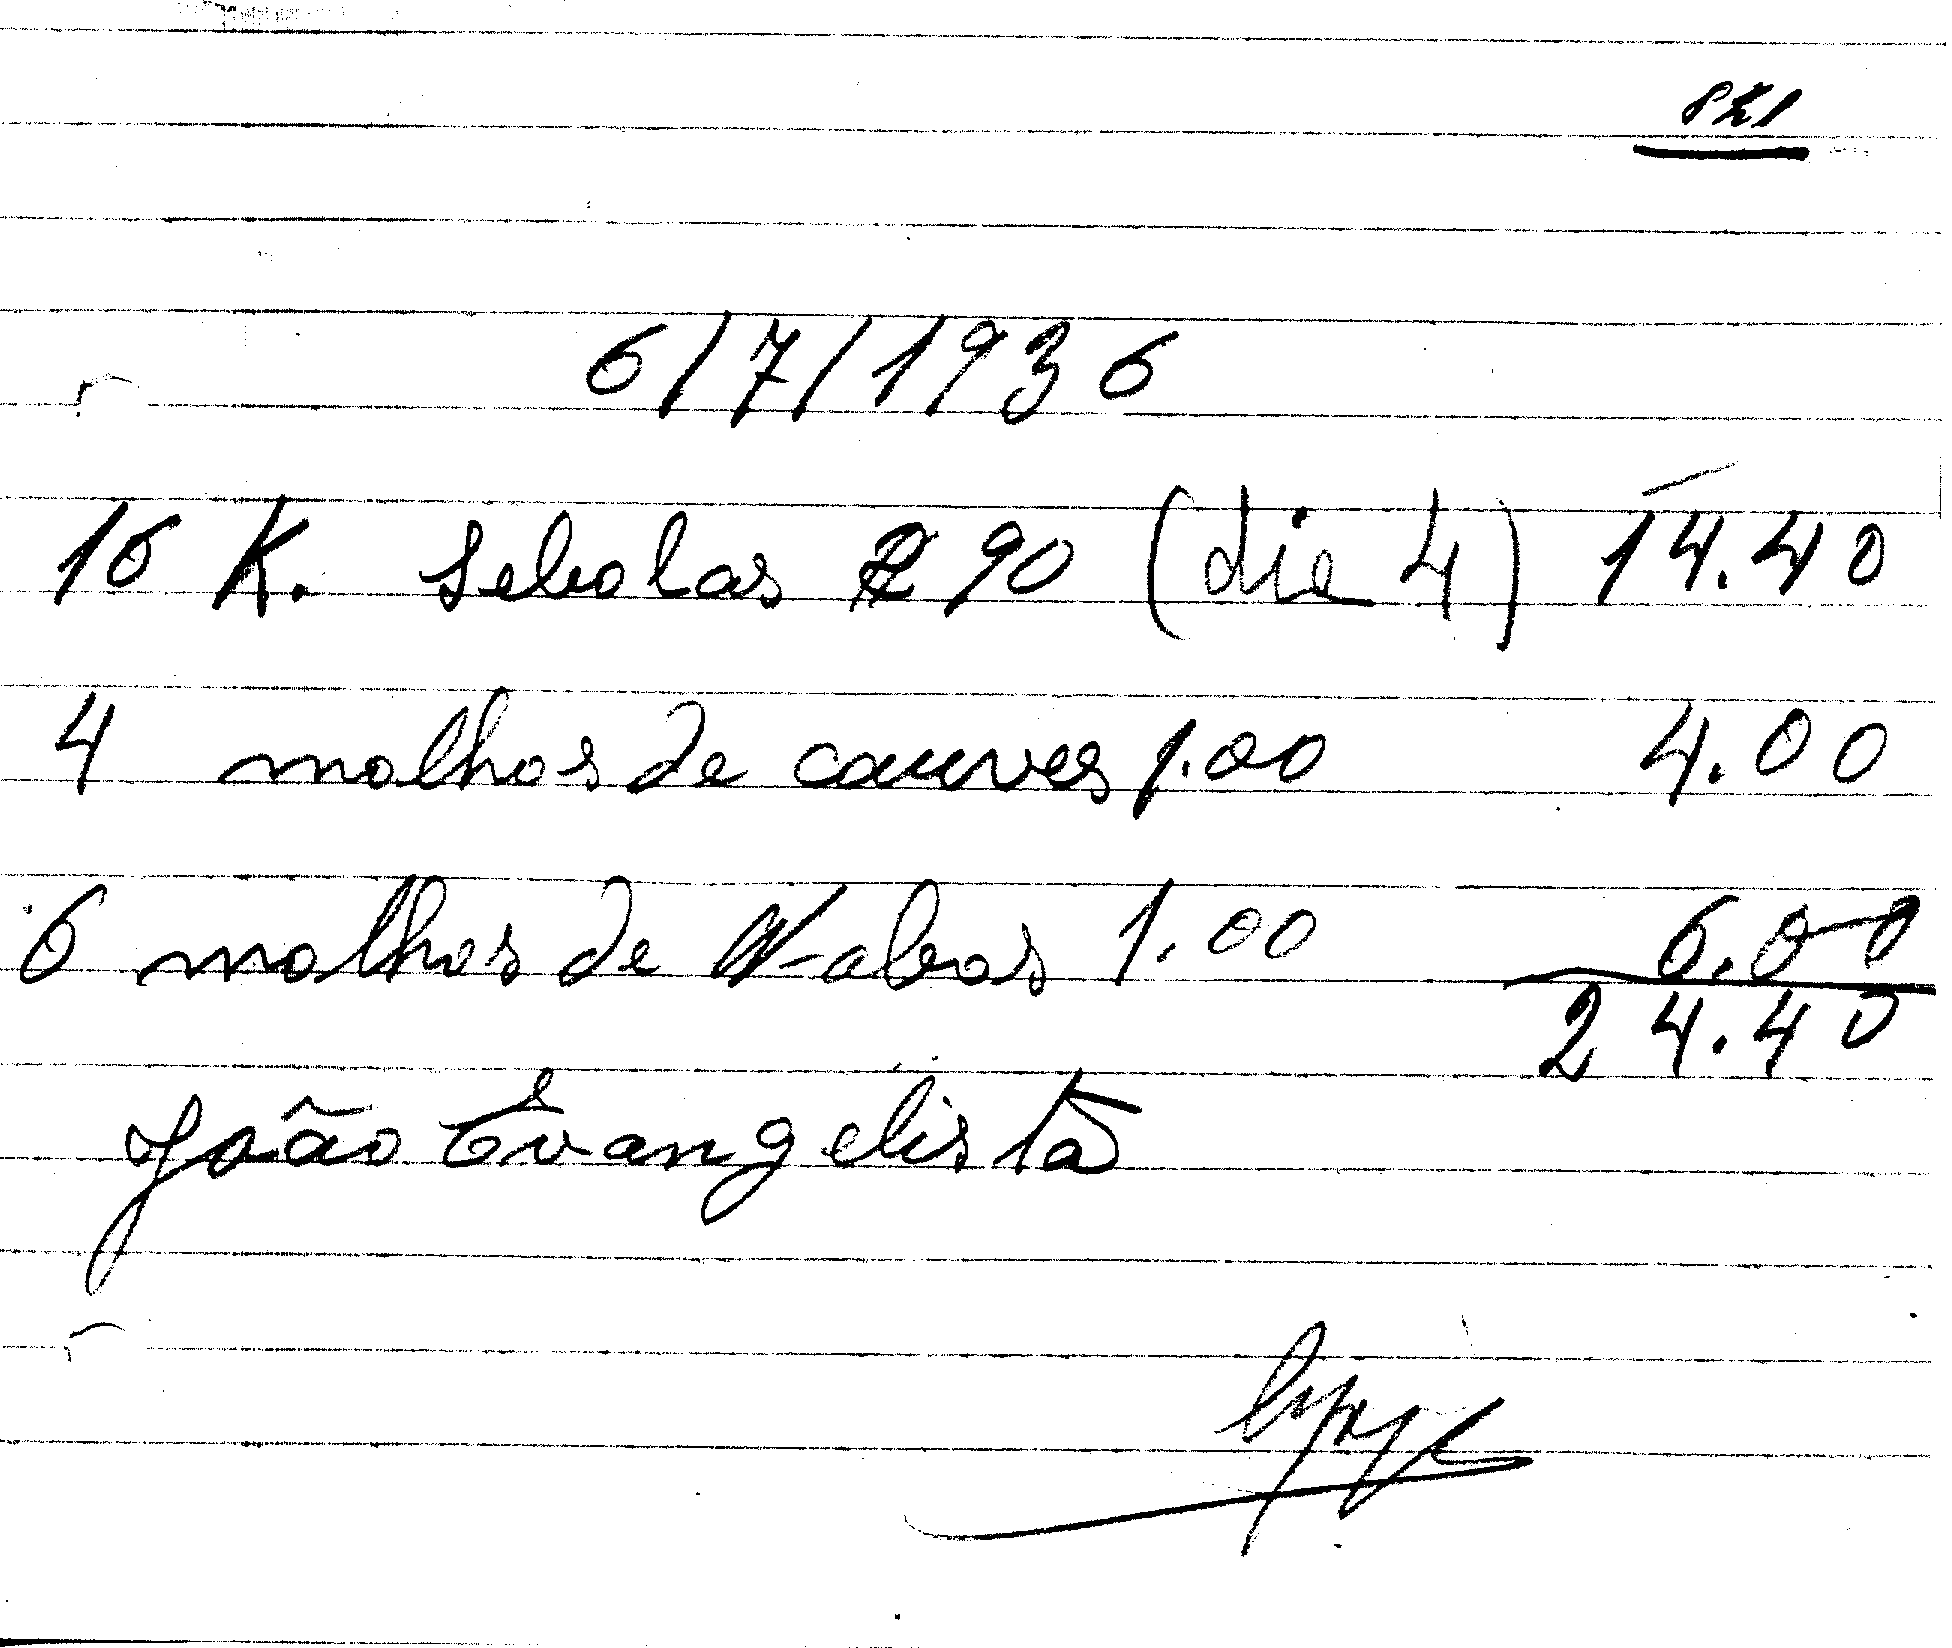 6/7/1936
16 K. Sebolas 90 (dia 4) 14.40
4 molhos de couves 1.00 4.00
6 molhos de N-abos 1.00 6.00
24.40
João Evangelista